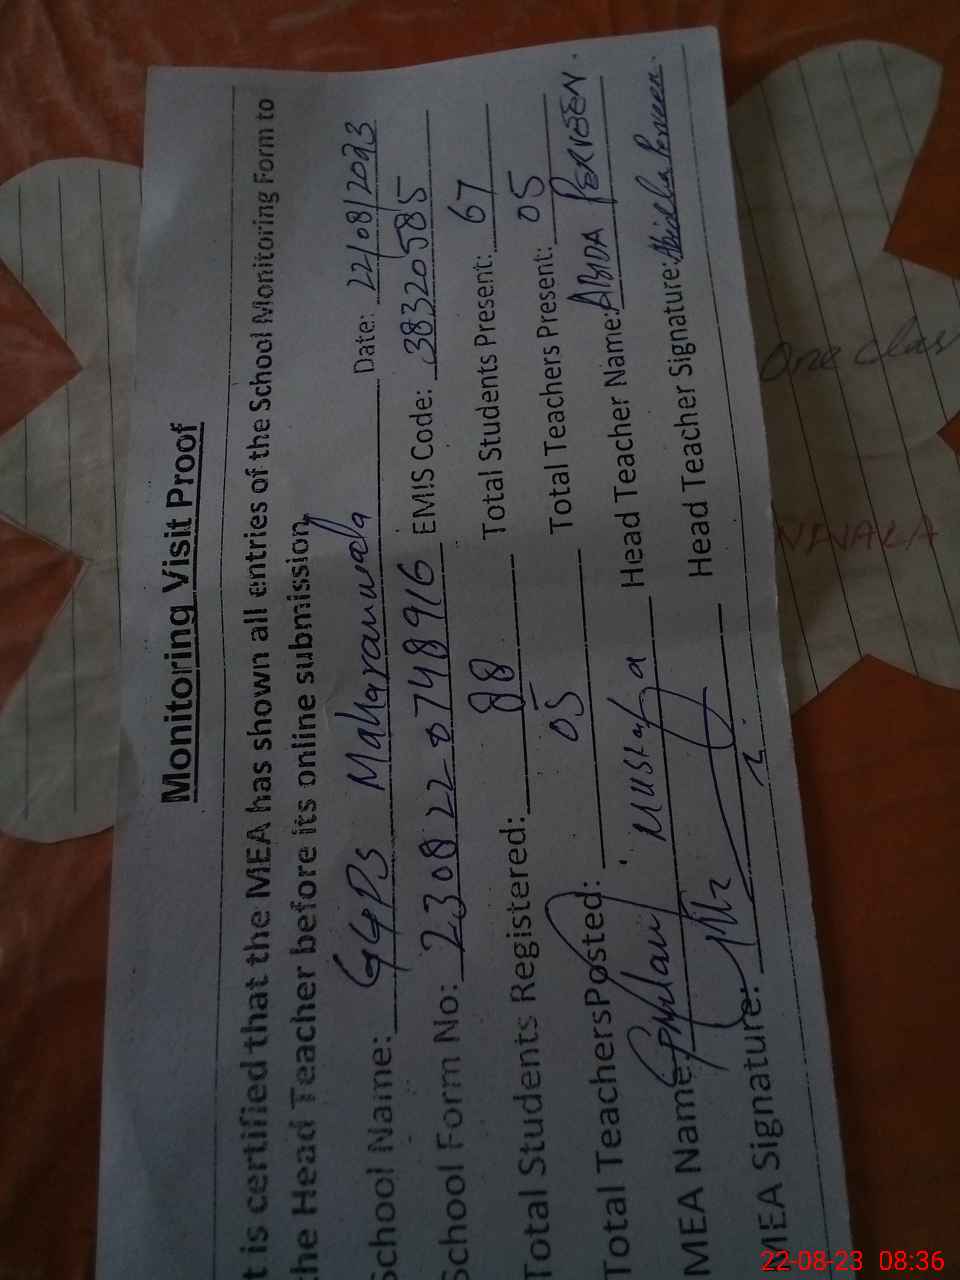 Monitoring Visit Proof
t is certified that the MEA has shown all entries of the School Monitoring Form to
the Head Teacher before its online submission
School Name: GGPS Maharanwala Date: 22/08/2023
School Form No: 2308220748916 EMIS Code: 38320585
Total Students Registered: 88 Total Students Present: 67
Total Teachers Posted: 05 Total Teachers Present: 05
MEA Name: Ghulam Mustafa Head Teacher Name: ABIDA PERVEEN.
MEA Signature: Head Teacher Signature: Abida Perveen.
One clas
NWALA
22-08-23 08:36